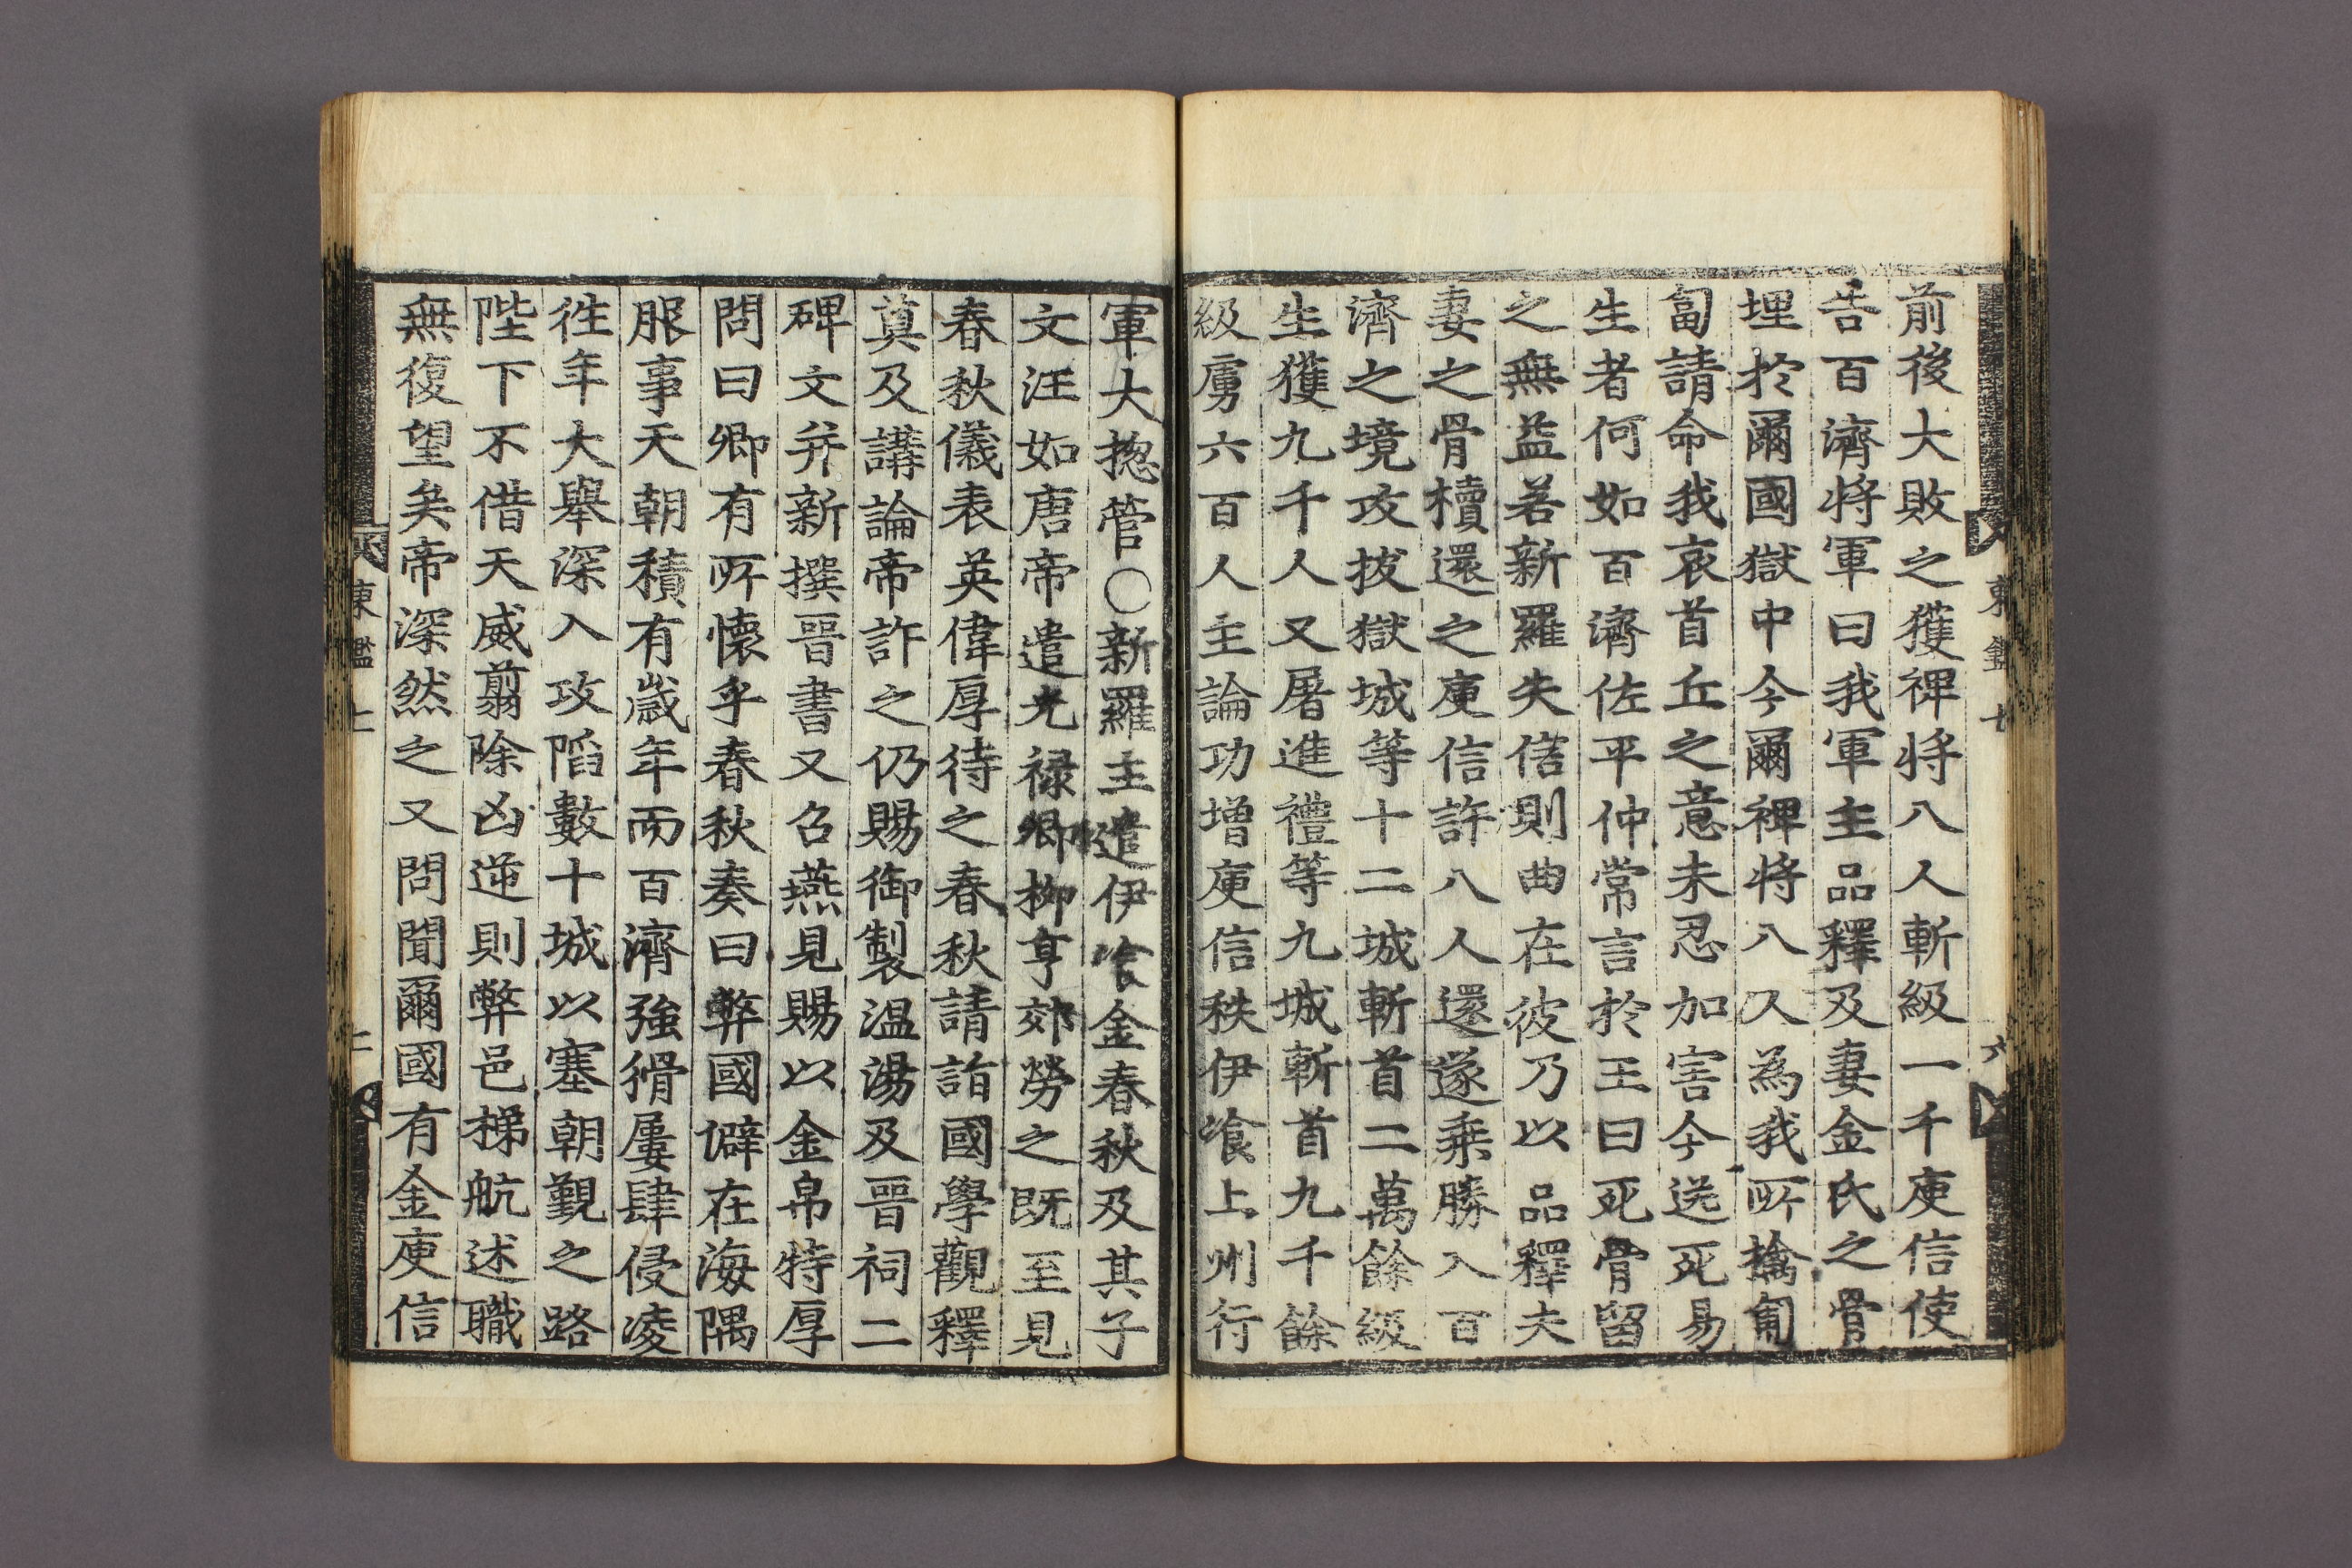 前後大敗之獲裨將八人斬級一千庾信使
告百濟將軍曰我軍主品釋及妻金氏之骨
埋於爾國獄中今爾裨將八人為我所擒匍
匐請命我哀首丘之意未忍加害今送死易
生者何如百濟佐平仲常言於王曰死骨留
之無益若新羅失信則曲在彼乃以品釋夫
妻之骨櫝還之庾信許八人還遂乘勝入百
濟之境攻拔獄城等十二城斬首二萬餘級
生獲九千人又屠進禮等九城斬首九千餘
級虜六百人主論功增庾信秩伊飡上州行
軍大摠管○新羅主遣伊飡金春秋及其子
文汪如唐帝遣光祿卿柳亨郊勞之既至見
春秋儀表英偉厚待之春秋請詣國學觀釋
奠及講論帝許之仍賜御製溫湯及晉祠二
碑文并新撰晉書又召燕見賜以金帛特厚
問曰卿有所懷乎春秋奏曰弊國僻在海隅
服事天朝積有歲年而百濟強猾屢肆侵凌
徃年大舉深入攻陷數十城以塞朝覲之路
陛下不借天威翦除凶逆則弊邑梯航述職
無復望矣帝深然之又問聞爾國有金庾信
東鑑七
六
東鑑七